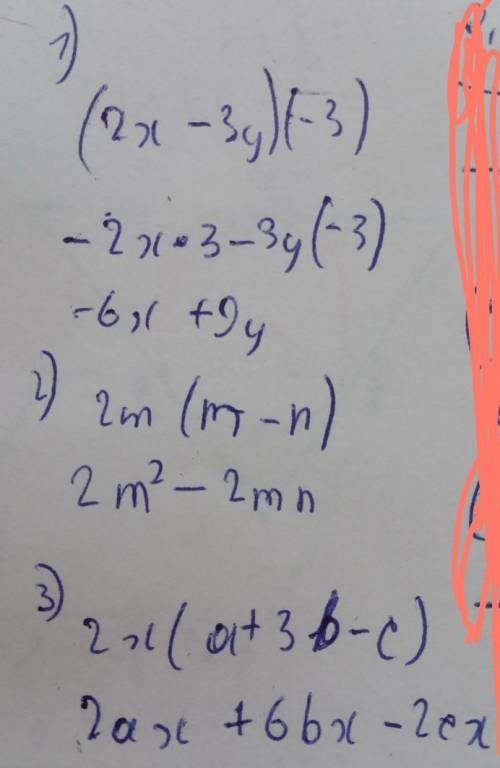 1)
(2x - 3y)(-3)
- 2x • 3 - 3y(-3)
-6x + 9y
2)
2m (m - n)
2m² - 2mn
3)
2x( a + 3b - c)
2ax + 6bx - 2cx